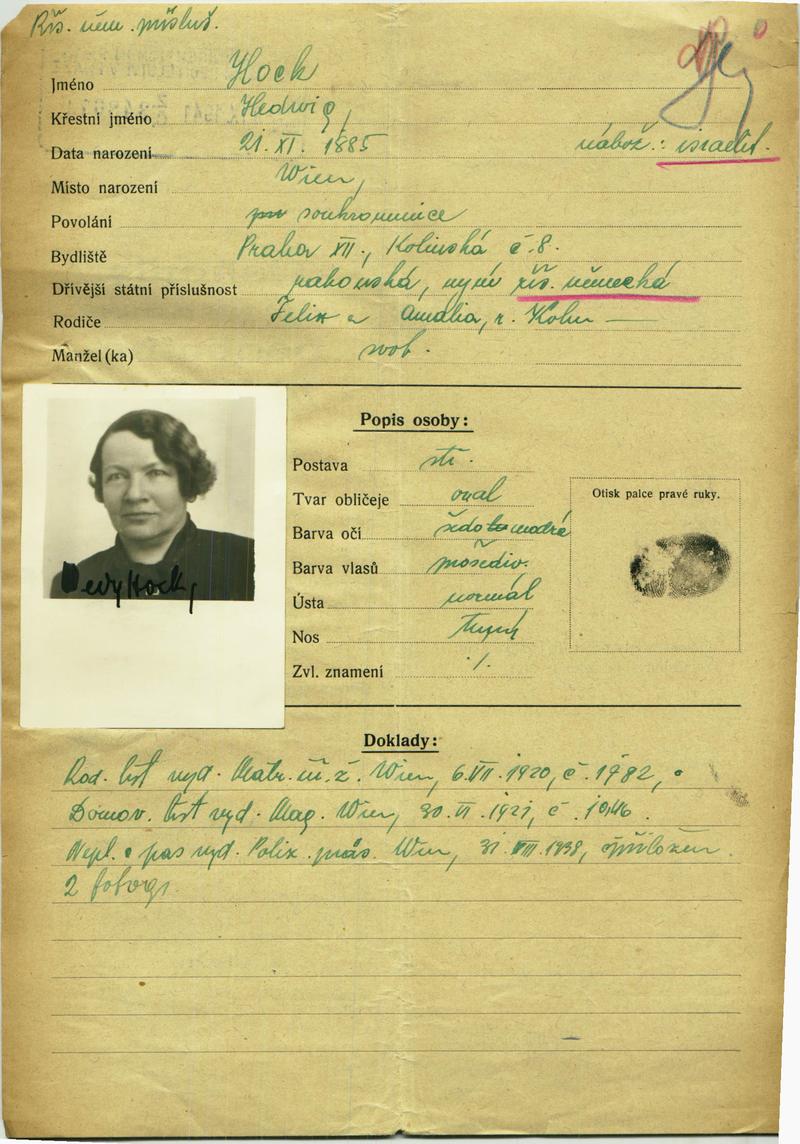 Říš. něm. přísluš.
Jméno Hock
Křestní jméno Hedwig,
Data narození 21. XI. 1885 nábož.: israelit.
Místo narození Wien,
Povolání soukromnice
Bydliště Praha XII., Kolínská č. 8.
Dřívější státní příslušnost rakouská, nyní říš. německá
Rodiče Felix a Amalia, r. Kohn
Manžel (ka) svob.
Popis osoby:
Postava stř.
Tvar obličeje oval
Barva očí šedo modré
Barva vlasů prošediv.
Ústa normál
Nos
Zvl. znamení ./.
Otisk palce pravé ruky.
Hedy Hock,
Doklady:
Rod. list vyd. Matr. ú. ž. Wien, 6. VII. 1920, č. 1982,
Domov. list vyd. Mag. Wien, 30. VI. 1921, č.
Nepl. pas vyd. Poliz. Wien, 31. VIII. 1938, přiložen.
2 fotogr.